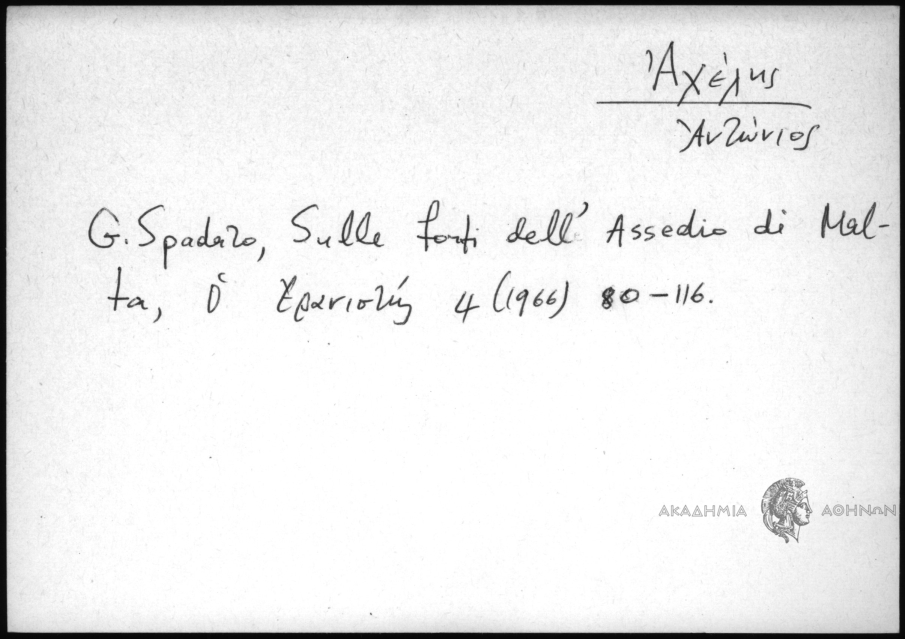 Ἀχέλης
Ἀντώνιος
G. Spadaro, Sulle fonti dell' Assedio di Mal-
ta, Ὁ Ἐρανιστής 4 (1966) 80-116.
ΑΚΑΔΗΜΙΑ ΑΘΗΝΩΝ